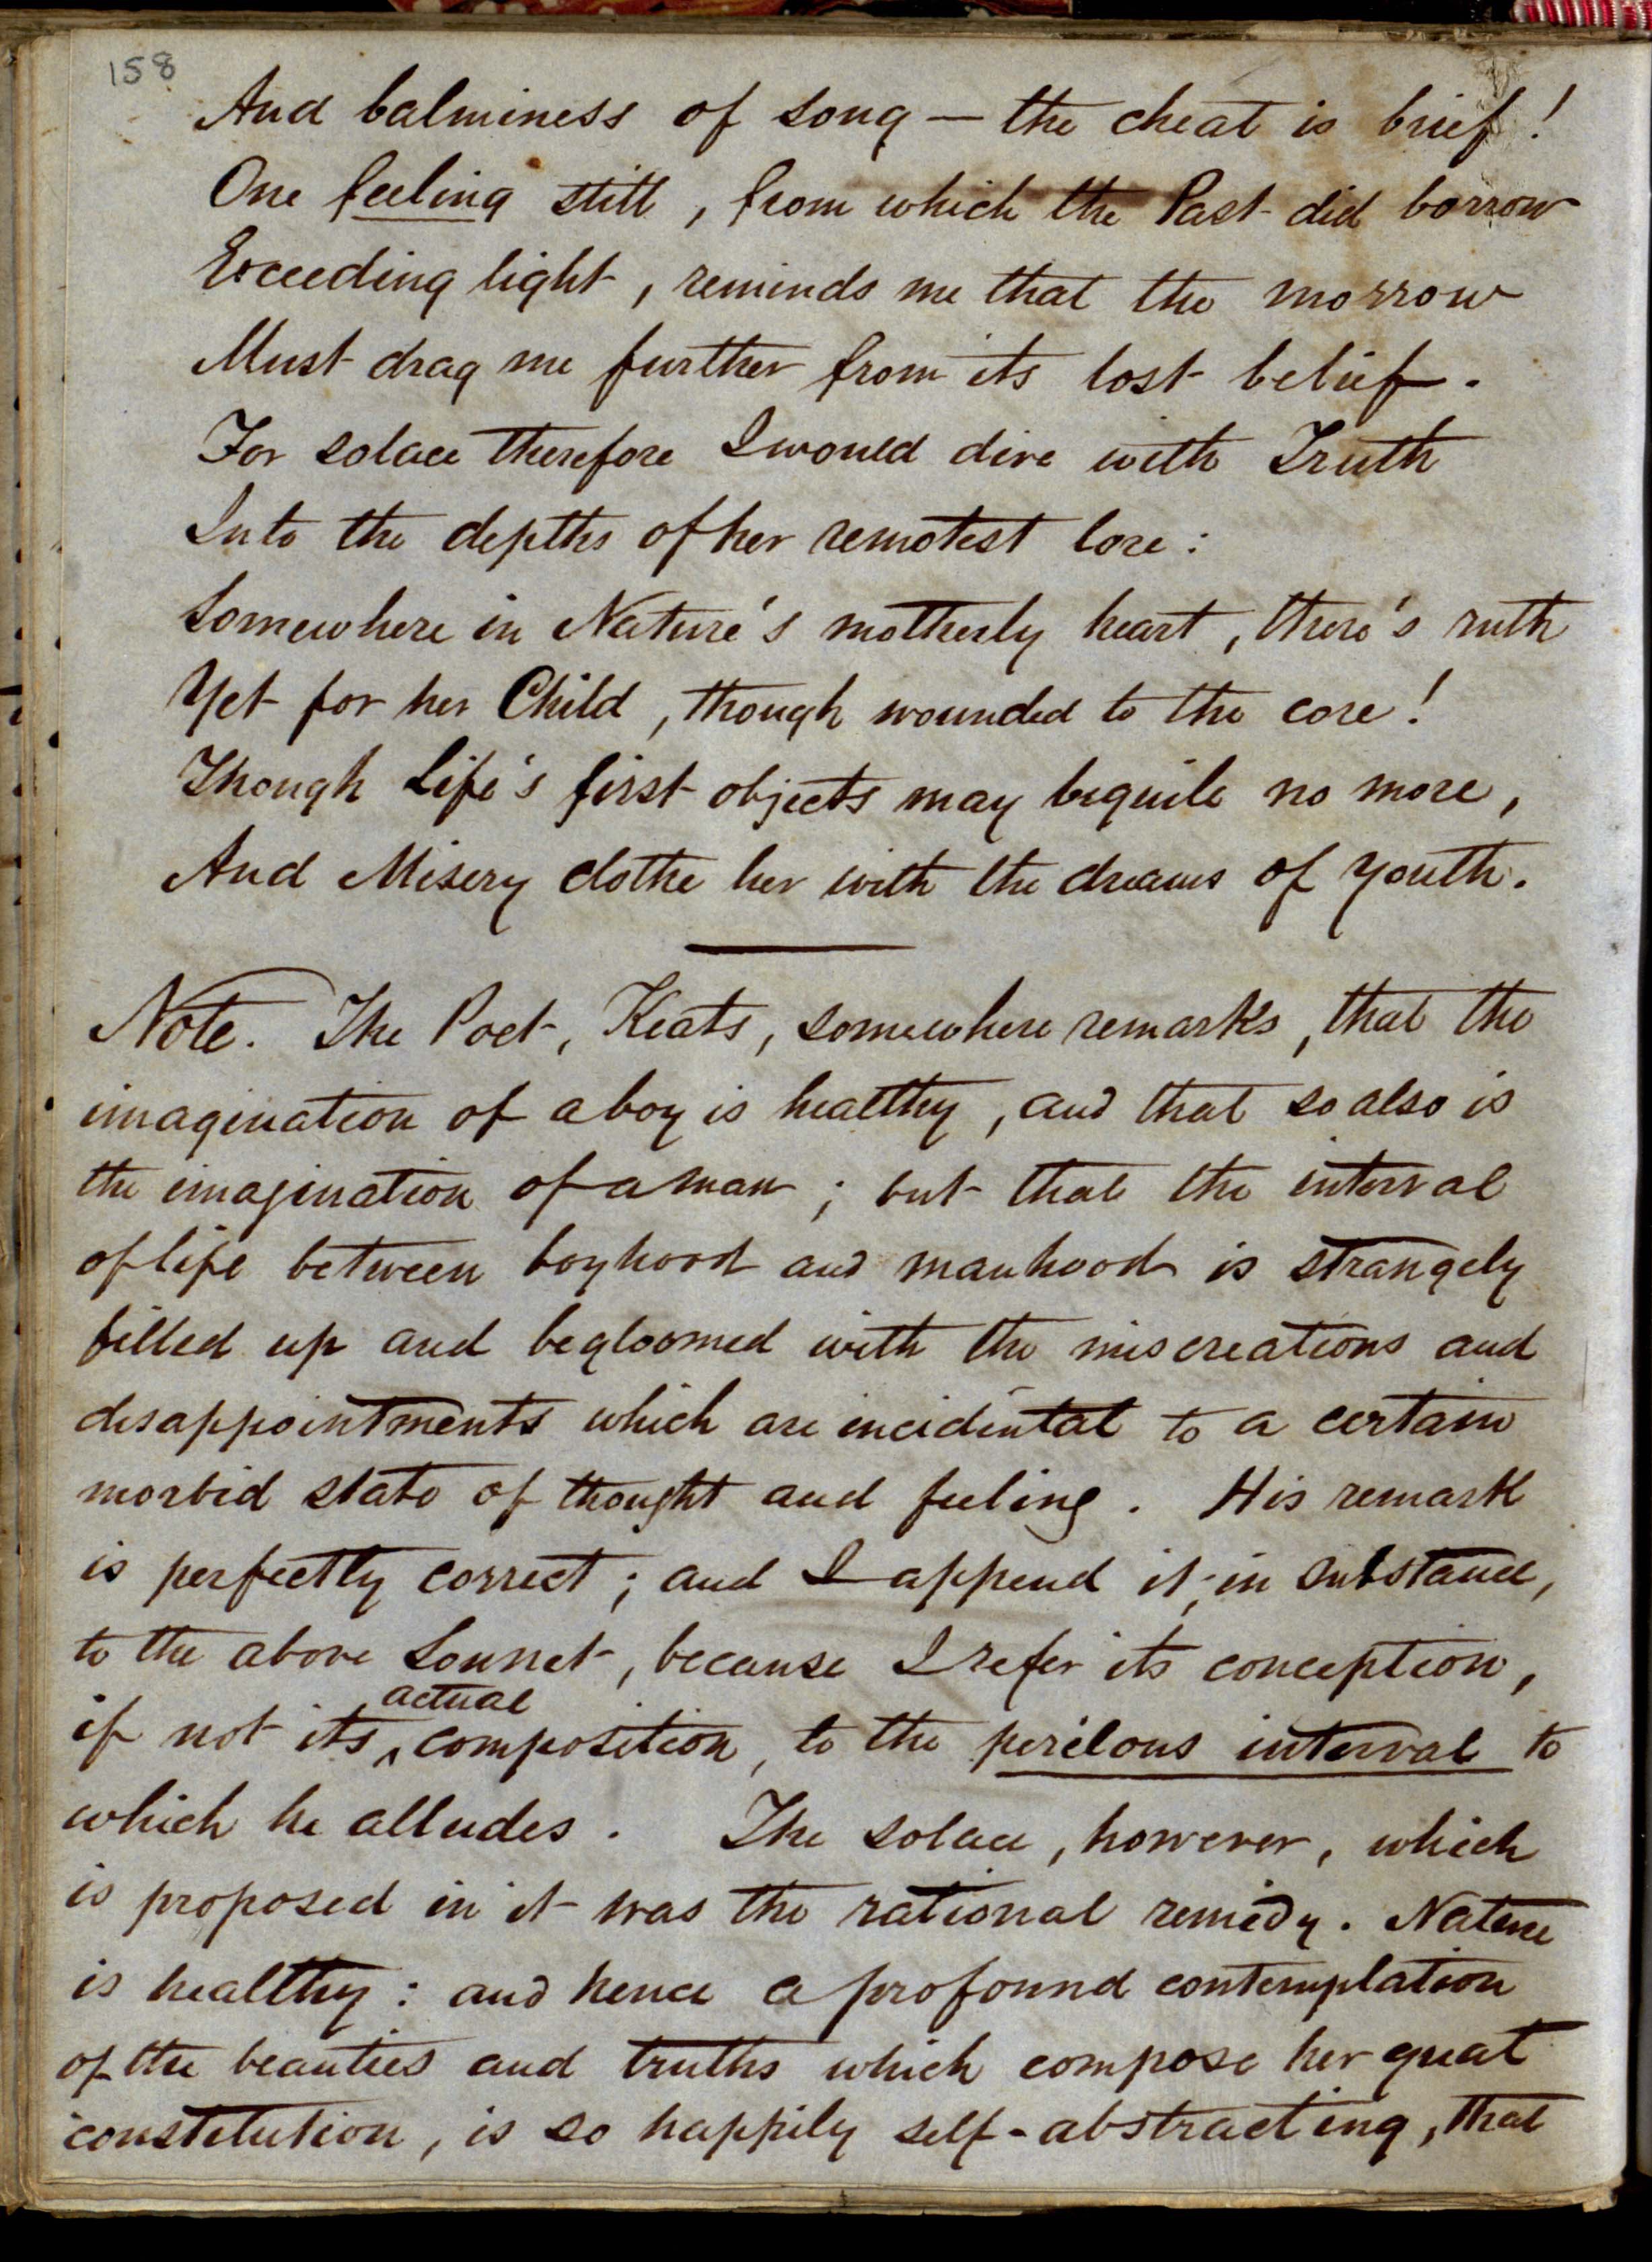 158
And balminess of song — the cheat is brief!
One feeling still, from which the Past did borrow
Exceeding light, reminds me that the morrow
Must drag me further from its lost belief.
For solace therefore I would dive with Truth
Into the depths of her remotest lore:
Somewhere in Nature's motherly heart, there's ruth
Yet for her Child, though wounded to the core!
Though Life's first objects may beguile no more,
And Misery clothe her with the dreams of youth.
Note. The Poet, Keats, somewhere remarks, that the
imagination of a boy is healthy, and that so also is
the imagination of a man; but that the interval
of life between boyhood and manhood is strangely
filled up and begloomed with the miscreations and
disappointments which are incidental to a certain
morbid state of thought and feeling. His remark
is perfectly correct; and I append it, in substance,
to the above Sonnet, because I refer its conception,
if not its actual composition, to the perilous interval to
which he alludes. The solace, however, which
is proposed in it was the rational remedy. Nature
is healthy: and hence a profound contemplation
of the beauties and truths which compose her great
constitution, is so happily self-abstracting, that